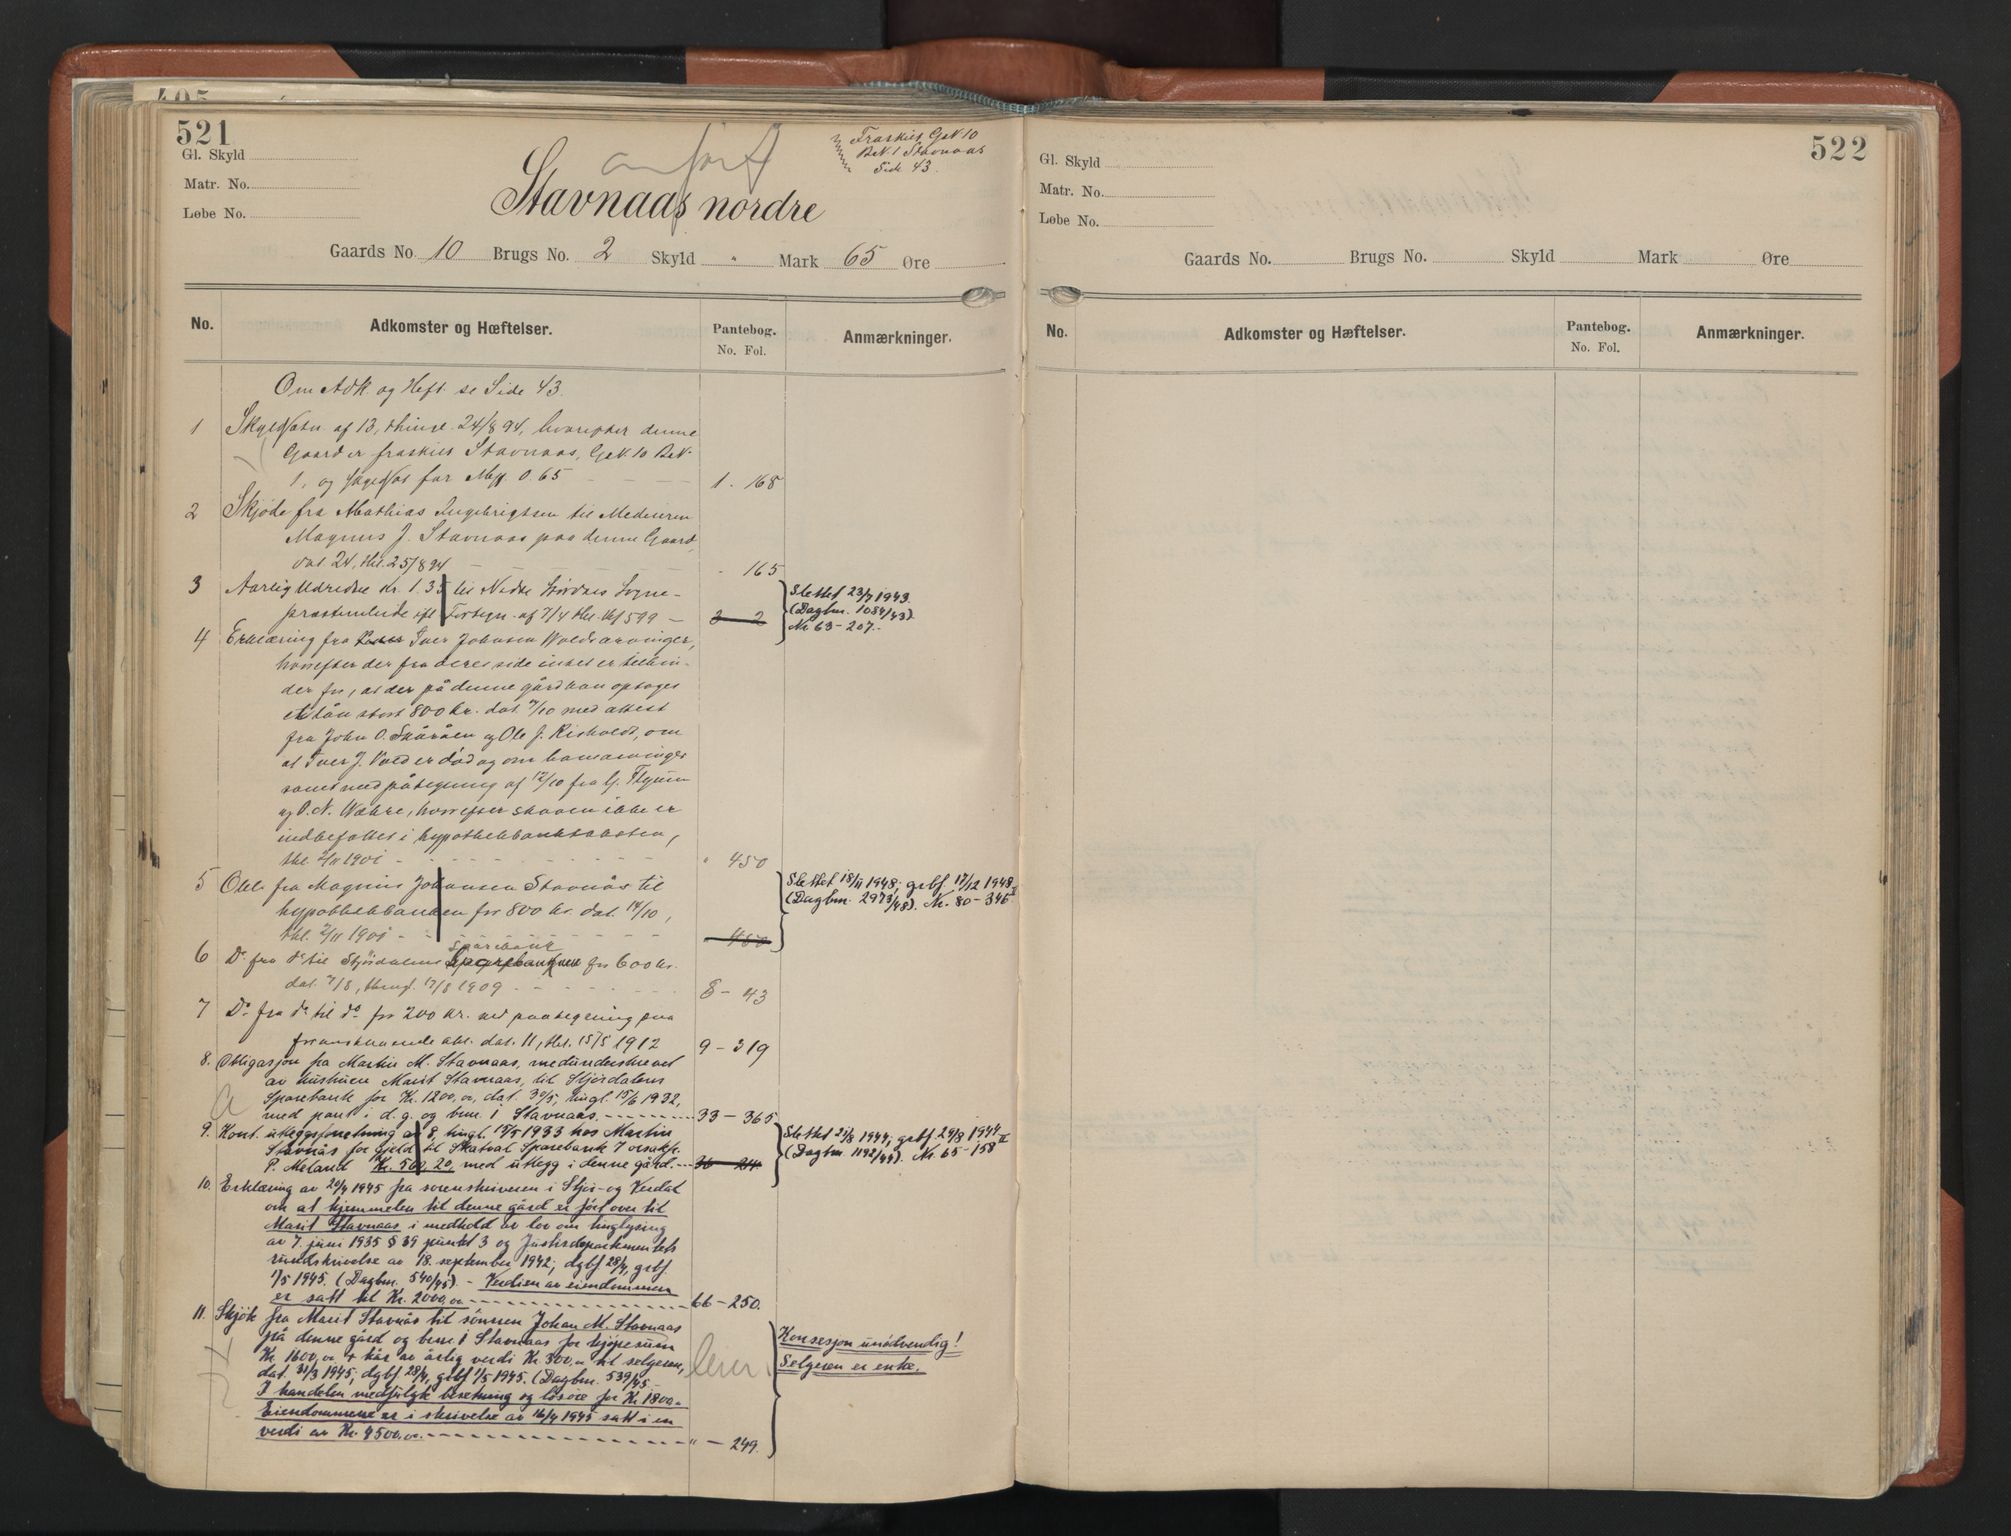 521
Gl. Skyld
Matr. No.
Løbe No.
anført
Fraskilt G.No 10
B.No 1 Stavnaas
Side 43.
Stavnaas nordre
Gaards No. 10 Brugs No. 2 Skyld " Mark 65 Øre
No. Adkomster og Hæftelser. Pantebog. No. Fol. Anmærkninger.
Om Adk. og Heft. se Side 43.
1 Skyldsætn. af 13, thingl. 24/8 94, hvorefter denne
Gaard er fraskilt Stavnaas, G.N. 10 B.N.
1, og skyldsat for Mk. 0.65 1. 168
2 Skjøde fra Mathias Ingebrigtsen til
Magnus J. Stavnaas paa denne Gaard,
dat 24, thl. 25/8 94 - 165
3 Aarlig Udredse Kr. 1.35 til Nedre Størdals Sogne-
præstembede ifl. Fortegn. af 7/4 thl. 16/5 99 — 2 2
Slettet 23/7 1943
(Dagbnr. 1084/43).
Nr 63-207.
4 Erklæring fra Iver Johnsen Wolds arvinger,
hvorefter der fra deres side intet er tilhin-
der for, at der på denne gård kan optages
et lån stort 800 kr. dat. 7/10 med attest
fra John O. Skåråen og Ole J. Risholdt, om
at Iver J. Vold er død og om hans arvinger
samt med påtegning af 12/10 fra
og O. N. Wækre, hvorefter skoven ikke er
indbefattet i hypothekbanktaksten,
thl. 2/11 1901 " 450
5 Obl. fra Magnus Johansen Stavnås til
hypothekbanken for 800 kr. dat. 14/10,
thl. 2/11 1901 450
Slettet 18/11 1948; grbf. 17/12 1948
(Dagbnr. 2973/48). Nr. 80-346
6 Do fra do til Stjørdalens Sparebank for 600 kr.
dat. 7/8, thingl. 17/8 1909 8 - 43
7 Do fra do til do for 200 kr. med paategning paa
foranstaaende obl. dat. 11, thl. 15/5 1912 9 - 319
8. Obligasjon fra Martin M. Stavnaas, medunderskrevet
av hustruen Marit Stavnaas, til Stjørdalens
Sparebank for Kr. 1200,00, dat. 30/5, tingl. 15/6 1932,
med pant i d. g. og bnr. 1 Stavnaas. 33 - 365
9. Kont. utleggsforretning av 8, tingl. 15/5 1933 hos Martin
Stavnås for gjeld til Skatval Sparebank v/ orsakf.
P. Meland Kr. 500,20, med utlegg i denne gård. 36 - 24.
Slettet 21/8 1944; grbf. 24/8 1944
(Dagbnr. 1192/44). Nr. 65-158 II
10. Erklæring av 20/4 1945 fra sorenskriveren i Stjør- og Verdal
om at hjemmelen til denne gård er ført over til
Marit Stavnaas i medhold av lov om tinglysing
av 7. juni 1935 § 39 punkt 3 og Justisdepartementets
rundskrivelse av 18. september 1942; dgbf. 28/4, grbf.
1/5 1945. (Dagbnr. 540/45). - Verdien av eiendommen
er satt til Kr. 2000,00 66 - 250.
11. Skjøte fra Marit Stavnås til sønnen Johan M. Stavnaas
på denne gård og bnr. 1 Stavnaas for kjøpesum
Kr. 1600,00 + kår av årlig verdi Kr. 300,00 til selgeren,
dat. 31/3 1945, dgbf. 28/4, grbf. 1/5 1945. (Dagbnr. 539/45 -
I handelen medfulgte besetning og løsøre for Kr. 1800.-
Eiendommene er i skrivelse av 16/4 1945 satt i en
verdi av Kr. 4500,00. " - 249.
Konsesjon unødvendig!
Selgeren er enke.
522
Gl. Skyld
Matr. No.
Løbe No.
Gaards No. Brugs No. Skyld Mark Øre
No. Adkomster og Hæftelser. Pantebog. No. Fol. Anmærkninger.